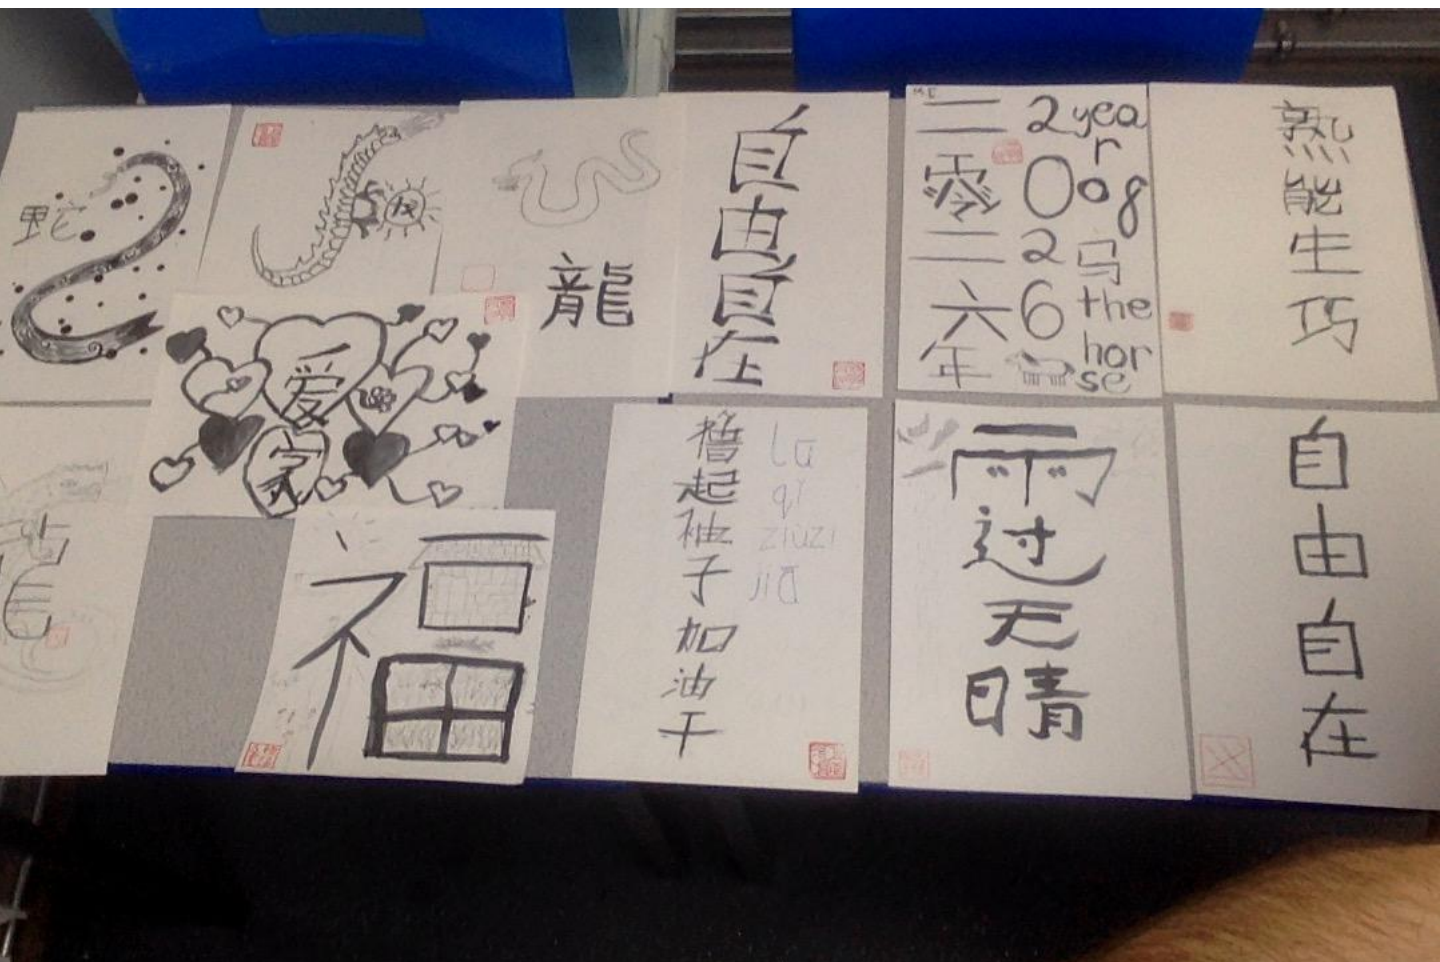 蛇
龍
自由自在
二零二六年
2026
year
of
the
horse
熟能生巧
爱
家
福
撸起袖子加油干
lu
qi
ziuzi
jia
雨过天晴
自由自在